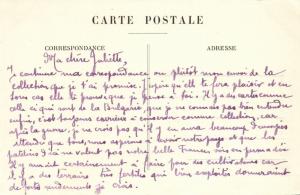 CARTE POSTALE
CORRESPONDANCE
ADRESSE
Ma chère Juliette,
Je continue ma correspondance ou plutôt mon envoi de la
collection que je t'ai promise. J'espère qu'elle te fera plaisir et en
tous cas elle te prouve que je pense à toi. Il y a des cartes comme
celle ci qui sont de la Bulgarie que je ne connais pas bien entendu
enfin, c'est toujours curieux à conserver comme collection, car
après la guerre, je ne crois pas qu'il y en aura beaucoup d'
attendu que tous nous aurons
notre belle France,
il y aurait certainement à faire pour des cultivateurs car
il y a des terrains très fertiles qui bien exploités donneraient
de forts rendements je crois.